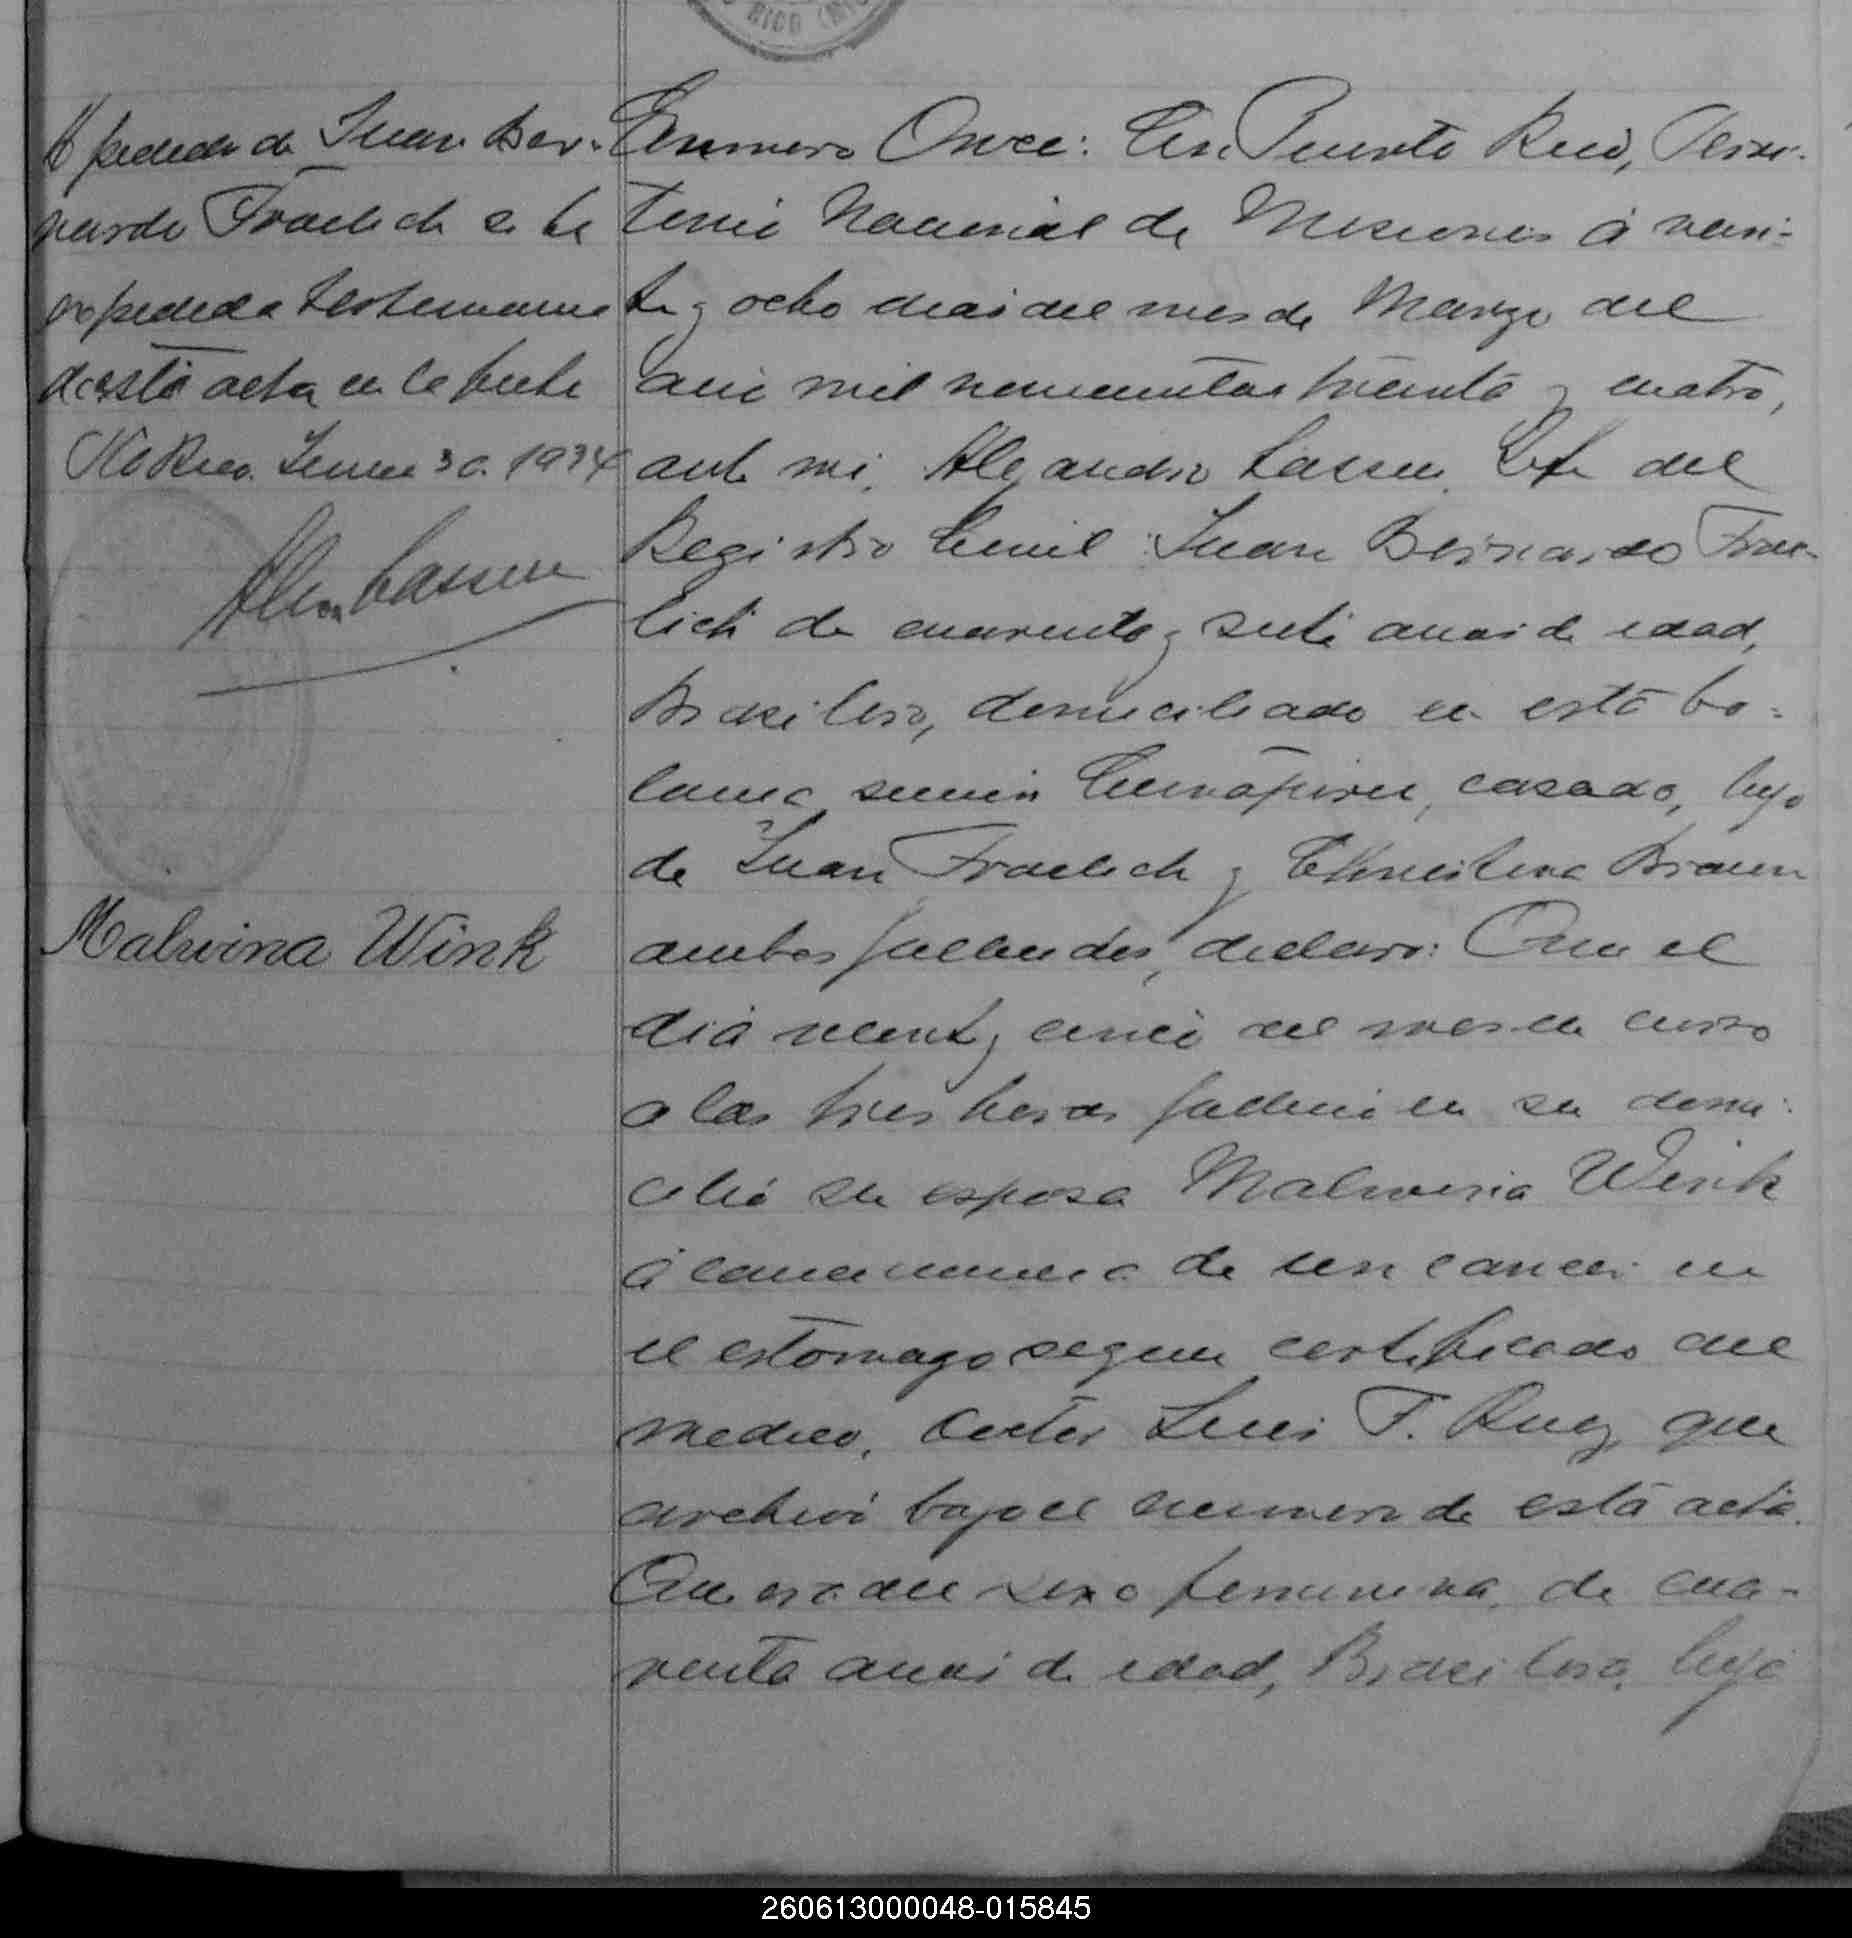 RICO (MIS
A pedido de Juan Ber-
nardo Fraelich se he
expedido testimonio
de esta acta en la fecha
Pto Rico. Junio 30. 1934
Alej Lassen
Malwina Wink
Numero Once: En Puerto Rico, Terri-
torio Nacional de Misiones á vein-
te y ocho dias del mes de Marzo del
año mil novecientos treinta y cuatro,
ante mi, Alejandro Lassen, Jefe del
Registro Civil: Juan Bernardo Frae-
lich de cuarenta y siete años de edad,
Brasilero, domiciliado en está co-
lonia, casado, hijo
de Juan Fraelich y Christina Braun
ambos fallecidos, declaro: Que el
dia veinte y cinco del mes en curso
a las tres horas fallecio en su domi-
cilio su esposa Malwina Wink
á consecuencia de un cancer en
el estómago segun certificado del
medico, Luis F. Ruiz, que
archivo bajo el numero de está acta.
Que era del sexo femenino, de cua-
renta años de edad, Brasilera, hija
260613000048-015845